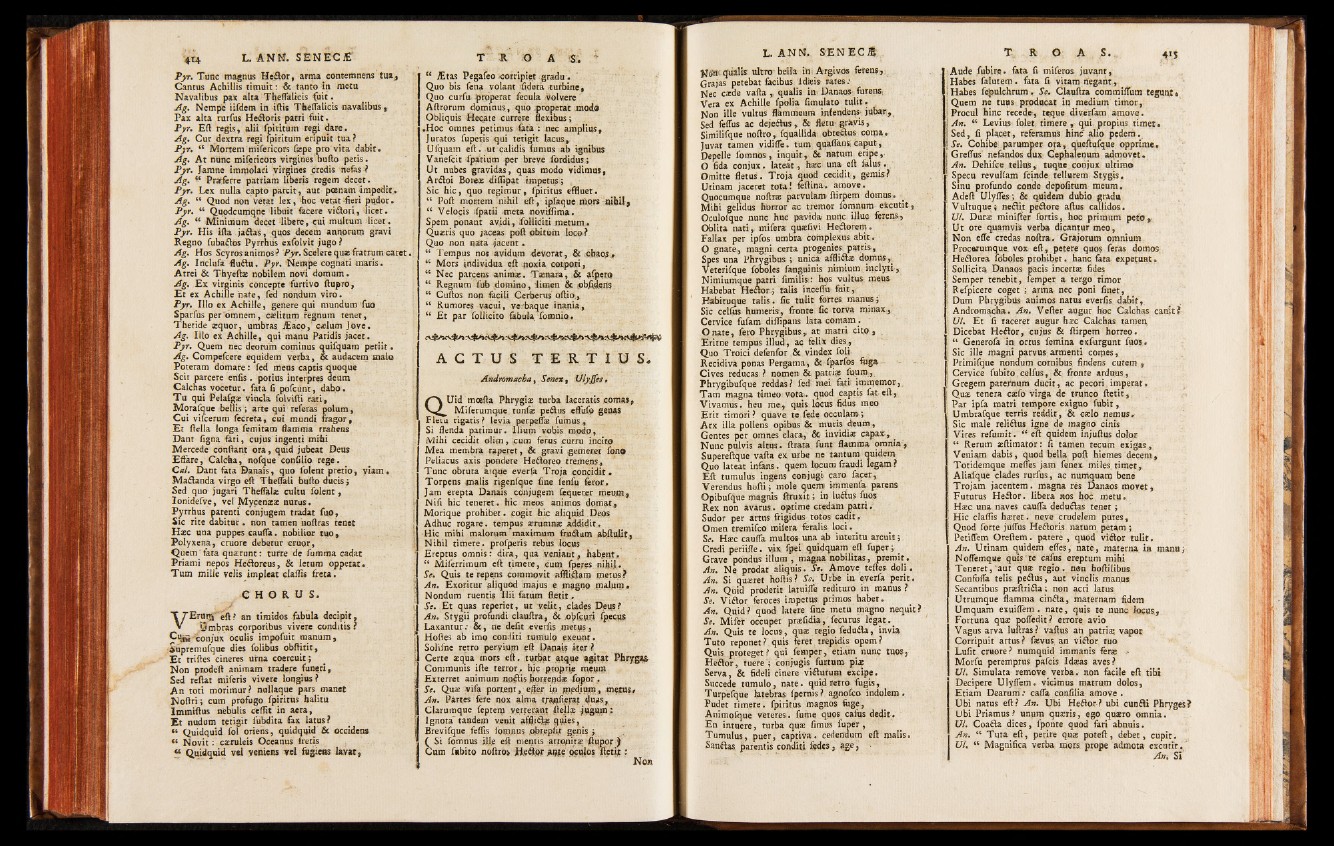 414 L. ANN. SENECÆ
Pyr. Tunc magnus Hector, arma contemnens tua,
Cantus Achillis timuit: & tanto in metu
Navalibus pax alta Theſſalicis fuit.
Ag. Nempe iiſdem in iſtis Theſſalicis navalibus,
Pax alta rurſus Hectoris patri fuit.
Pyr. Eſt regis, alii ſpiritum regi dare.
Ag. Cur dextra regi ſpiritum eripuit tua?
Pyr. “ Mortem miſericors ſæpe pro vita dabit.
Ag. At nunc miſericors virgines buſto petis.
Pyr. Jamne immolari virgines credis nefas?
Ag. “ Præferre patriam liberis regem decet.
Pyr. Lex nulla capto parcit, aut pœnam impedit.
Ag. “ Quod non vetat lex, hoc vetat fieri pudor.
Pyr. “ Quodcumque libuit facere victori, licet.
Ag. “ Minimum decet libere, cui multum licet.
Pyr. His iſta jactas, quos decem annorum gravi
Regno ſubactos Pyrrhus exſolvit jugo?
Ag. Hos Scyros animos? Pyr. Scelere quæ fratrum caret.
Ag. Incluſa fluctu. Pyr. Nempe cognati maris.
Atrei & Thyeſtæ nobilem novi domum.
Ag. Ex virginis concepte furtivo ſtupro,
Et ex Achille nate, ſed nondum viro.
Pyr. Illo ex Achille, genere qui mundum ſuo
Sparſus per omnem, cælitum regnum tenet,
Thetide æquor, umbras Æaco, cælum Jove.
Ag. Illo ex Achille, qui manu Paridis jacet.
Pyr. Quem nec deorum cominus quiſquam petiit.
Ag. Compeſcere equidem verba, & audacem malo
Poteram domare: ſed meus captis quoque
Scit parcere enſis. potius interpres deum
Calchas vocetur. fata ſi poſcunt, dabo.
Tu qui Pelaſgæ vincla ſolviſti rati,
Moraſque bellis; arte qui reſeras polum,
Cui viſcerum ſecreta, cui mundi fragor,
Et ſtella longa ſemitam flamma trahens
Dant ſigna fati, cujus ingenti mihi
Mercede conſtant ora, quid jubeat Deus
Effare, Calcha, noſque conſilio rege.
Cal. Dant fata Danais, quo ſolent pretio, viam.
Mactanda virgo eſt Theſſali buſto ducis;
Sed quo jugari Theſſalæ cultu ſolent,
Ionideſve, vel Mycenææ nurus.
Pyrrhus parenti conjugem tradat ſuo,
Sic rite dabitur. non tamen noſtras tenet
Hæc una puppes cauſſa. nobilior tuo,
Polyxena, cruore debetur cruor,
Quem fata quærunt: turre de ſumma cadat
Priami nepos Hectoreus, & letum oppetat.
Tum mille velis impleat claſſis freta.
CHORUS.
VErum eſt? an timidos fabula decipit,
Umbras corporibus vivere conditis?
Cum conjux oculis impoſuit manum,
Supremuſque dies ſolibus obſtitit,
Et triſtes cineres urna coercuit;
Non prodeſt animam tradere funeri,
Sed reſtat miſeris vivere longius?
An toti morimur? nullaque pars manet
Noſtri; cum profugo ſpiritus halitu
Immiſtus nebulis ceſſit in aera,
Et nudum tetigit ſubdita fax latus?
“ Quidquid ſol oriens, quidquid & occidens
“ Novit: cæruleis Oceanus fretis
“ Quidquid vel veniens vel fugiens lavat,
TROAS.
“ Ætas Pegaſeo corripiet gradu.
Quo bis ſena volant ſidera turbine,
Quo curſu properat ſecula volvere
Aſtrorum dominus, quo properat modo
Obliquis Hecate currere flexibus;
Hoc omnes petimus fata: nec amplius,
Juratos ſuperis qui tetigit lacus,
Uſquam eſt. ut calidis fumus ab ignibus
Vaneſcit ſpatium per breve ſordidus;
Ut nubes gravidas, quas modo vidimus,
Arctoi Boreæ diſſipat impetus;
Sic hic, quo regimur, ſpiritus effluet.
“ Poſt mortem nihil eſt, ipſaque mors nihil,
“ Velocis ſpatii meta noviſſima.
Spem ponant avidi, ſolliciti metum,
Quæris quo jaceas poſt obitum loco?
Quo non nata jacent.
“ Tempus nos avidum devorat, & chaos.
“ Mors individua eſt noxia corpori,
“ Nec parcens animæ. Tænara, & aſpero
“ Regnum ſub domino, limen & obſidens
“ Cuſtos non facili Cerberus oſtio,
“ Rumores vacui, verbaque inania,
“ Et par ſollicito fabula ſomnio.
ACTUS TERTIUS.
Andromacha, Senex, Ulyſſes.
QUid mœſta Phrygiæ turba laceratis comas,
Miſerumque tunſæ pectus effuſo genas
Fletu rigatis? levia perpeſſæ ſumus,
Si flenda patimur. Ilium vobis modo,
Mihi cecidit olim, cum ferus curru incito
Mea membra raperet, & gravi gemeret ſono
Peliacus axis pondere Hectoreo tremens,
Tunc obruta atque everſa Troja concidit.
Torpens malis rigenſque ſine ſenſu feror.
Jam erepta Danais conjugem ſequerer meum,
Niſi hic teneret. hic meos animos domat,
Morique prohibet. cogit hic aliquid Deos
Adhuc rogare. tempus ærumnæ addidit.
Hic mihi malorum maximum fructum abſtulit,
Nihil timere. proſperis rebus locus
Ereptus omnis: dira, qua veniant, habent.
“ Miſerrimum eſt timere, cum ſperes nihil.
Se. Quis te repens commovit afflictam metus?
An. Exoritur aliquod majus e magno malum.
Nondum ruentis Ilii fatum ſtetit.
Se. Et quas reperiet, ut velit, clades Deus?
An. Stygii profundi clauſtra, & obſcuri ſpecus
Laxantur: &, ne deſit everſis metus,
Hoſtes ab imo conditi tumulo exeunt.
Soliſne retro pervium eſt Danais iter?
Certe æqua mors eſt. turbat atque agitat Phrygas
Communis iſte terror. hic proprie meum
Exterret animum noctis horrendæ ſopor.
Se. Quæ viſa portent, effer in medium, metus.
An. Partes fere nox alma tranſierat duas,
Clarumque ſeptem verterant ſtellæ jugum:
Ignota tandem venit afflictæ quies,
Breviſque feſſis ſomnus obrepſit genis;
( Si ſomnus ille eſt mentis attonitæ ſtupor )
Cum ſubito noſtros Hector ante oculos ſtetit:
Non
L. ANN. SENECÆ
Non qualis ultro bella in Argivos ferens,
Grajas petebat facibus Idæis rates:
Nec cæde vaſta, qualis in Danaos furens,
Vera ex Achille ſpolia ſimulato tulit.
Non ille vultus flammeum intendens jubar,
Sed feſſus ac dejectus, & fletu gravis,
Similiſque noſtro, ſquallida obtectus coma.
Juvat tamen vidiſſe. tum quaſſans caput,
Depelle ſomnos, inquit, & natum eripe,
O fida conjux. lateat, hæc una eſt ſalus.
Omitte fletus. Troja quod cecidit, gemis?
Utinam jaceret tota! feſtina. amove.
Quocumque noſtræ parvulam ſtirpem domus.
Mihi gelidus horror ac tremor ſomnum excutit,
Oculoſque nunc huc pavida nunc illuc ferens,
Oblita nati, miſera quæſivi Hectorem.
Fallax per ipſos umbra complexus abit.
O gnate, magni certa progenies patris,
Spes una Phrygibus; unica afflictæ domus,
Veteriſque ſoboles ſanguinis nimium inclyti,
Nimiumque patri ſimilis: hos vultus meus
Habebat Hector; talis inceſſu fuit,
Habituque talis. ſic tulit fortes manus;
Sic celſus humeris, fronte ſic torva minax,
Cervice fuſam diſſipans lata comam.
O nate, ſero Phrygibus, at matri cito,
Eritne tempus illud, ac felix dies,
Quo Troici defenſor & vindex ſoli
Recidiva ponas Pergama, & ſparſos fuga
Cives reducas? nomen & patriæ ſuum,
Phrygibuſque reddas? ſed mei fati immemor,
Tam magna timeo vota. quod captis ſat eſt,
Vivamus. heu me, quis locus fidus meo
Erit timori? quave te ſede occulam;
Arx illa pollens opibus & muris deum,
Gentes per omnes clara, & invidiæ capax,
Nunc pulvis altus. ſtrata ſunt flamma omnia,
Supereſtque vaſta ex urbe ne tantum quidem
Quo lateat infans. quem locum fraudi legam?
Eſt tumulus ingens conjugis caro ſacer,
Verendus hoſti; mole quem immenſa parens
Opibuſque magnis ſtruxit; in luctus ſuos
Rex non avarus. optime credam patri.
Sudor per artus frigidus totos cadit.
Omen tremiſco miſera feralis loci.
Se. Hæc cauſſa multos una ab interitu arcuit;
Credi periiſſe. vix ſpei quidquam eſt ſuper;
Grave pondus illum, magna nobilitas, premit.
An. Ne prodat aliquis. Se. Amove teſtes doli.
An. Si quæret hoſtis? Se. Urbe in everſa perit.
An. Quid proderit latuiſſe redituro in manus?
Se. Victor feroces impetus primos habet.
An. Quid? quod latere ſine metu magno nequit?
Se. Miſer occupet præſidia, ſecurus legat.
An. Quis te locus, quæ regio ſeducta, invia
Tuto reponet? quis feret trepidis opem?
Quis proteget? qui ſemper, etiam nunc tuos,
Hector, tuere; conjugis furtum piæ
Serva, & fideli cinere victurum excipe.
Succede tumulo, nate. quid retro fugis,
Turpeſque latebras ſpernis? agnoſco indolem.
Pudet timere. ſpiritus magnos fuge,
Animoſque veteres. ſume quos caſus dedit.
En intuere, turba quæ ſimus ſuper,
Tumulus, puer, captiva. cedendum eſt malis.
Sanctas parentis conditi ſedes, age,
TROAS. 415
Aude ſubire. fata ſi miſeros juvant,
Habes ſalutem. fata ſi vitam negant,
Habes ſepulchrum. Se. Clauſtra commiſſum tegunt.
Quem ne tuus producat in medium timor,
Procul hinc recede, teque diverſam amove.
An. “ Levius ſolet timere, qui propius timet.
Sed, ſi placet, referamus hinc alio pedem.
Se. Cohibe parumper ora, queſtuſque opprime.
Greſſus nefandos dux Cephalenum admovet.
An. Dehiſce tellus, tuque conjux ultimo
Specu revulſam ſcinde tellurem Stygis.
Sinu profundo conde depoſitum meum.
Adeſt Ulyſſes; & quidem dubio gradu
Vultuque; nectit pectore aſtus callidos.
Ul. Duræ miniſter ſortis, hoc primum peto,
Ut ore quamvis verba dicantur meo,
Non eſſe credas noſtra. Grajorum omnium
Procerumque vox eſt, petere quos ſeras domos
Hectorea ſoboles prohibet. hanc fata expetunt.
Sollicita Danaos pacis incertæ fides
Semper tenebit, ſemper a tergo timor
Reſpicere coget; arma nec poni ſinet,
Dum Phrygibus animos natus everſis dabit,
Andromacha. An. Veſter augur hoc Calchas canit?
Ul. Et ſi taceret augur hæc Calchas tamen
Dicebat Hector, cujus & ſtirpem horreo.
“ Generoſa in ortus ſemina exſurgunt ſuos.
Sic ille magni parvus armenti comes,
Primiſque nondum cornibus findens cutem,
Cervice ſubito celſus, & fronte arduus,
Gregem paternum ducit, ac pecori imperat.
Quæ tenera cæſo virga de trunco ſtetit,
Par ipſa matri tempore exiguo ſubit,
Umbraſque terris reddit, & cælo nemus.
Sic male relictus igne de magno cinis
Vires reſumit. “ eſt quidem injuſtus dolor
“ Rerum æſtimator: ſi tamen tecum exigas,
Veniam dabis, quod bella poſt hiemes decem,
Totidemque meſſes jam ſenex miles timet,
Aliaſque clades rurſus, ac numquam bene
Trojam jacentem. magna res Danaos movet,
Futurus Hector. libera nos hoc metu.
Hæc una naves cauſſa deductas tenet;
Hic claſſis hæret. neve crudelem putes,
Quod ſorte juſſus Hectoris natum petam;
Petiſſem Oreſtem. patere, quod victor tulit.
An. Utinam quidem eſſes, nate, materna in manu;
Noſſemque quis te caſus ereptum mihi
Teneret, aut quæ regio. non hoſtilibus
Confoſſa telis pectus, aut vinclis manus
Secantibus præſtricta; non acri latus
Utrumque flamma cincta, maternam fidem
Umquam exuiſſem. nate, quis te nunc locus,
Fortuna quæ poſſedit? errore avio
Vagus arva luſtras? vaſtus an patriæ vapor
Corripuit artus? ſævus an victor tuo
Luſit cruore? numquid immanis feræ
Morſu peremptus paſcis Idæas aves?
Ul. Simulata remove verba. non facile eſt tibi
Decipere Ulyſſem. vicimus matrum dolos,
Etiam Dearum: caſſa conſilia amove.
Ubi natus eſt? An. Ubi Hector? ubi cuncti Phryges?
Ubi Priamus? unum quæris, ego quæro omnia.
Ul. Coacta dices, ſponte quod fari abnuis.
An. “ Tuta eſt, perire quæ poteſt, debet, cupit.
Ul. “ Magnifica verba mors prope admota excutit.
An. Si